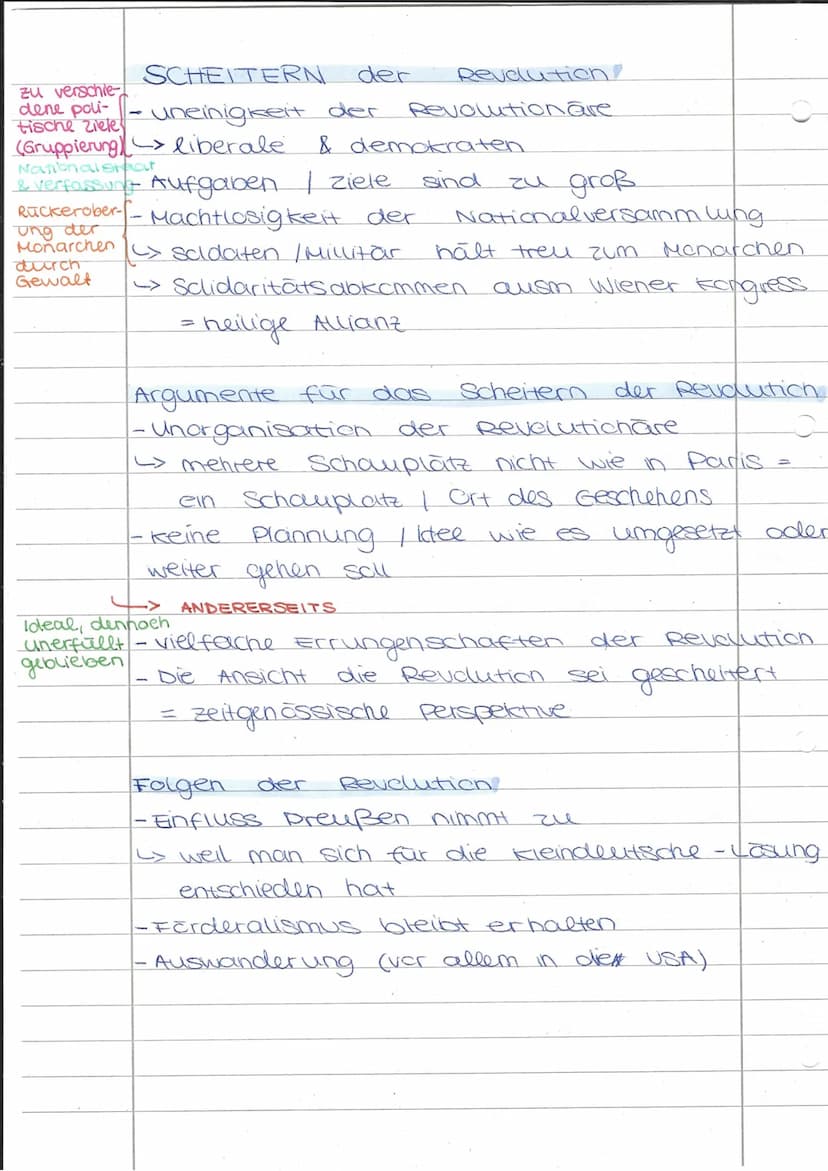 SCHEITERN der Revolution!
zu verschie-
dene poli-
tische Ziele
(Gruppierung)
- uneinigkeit der Revolutionäre
↳ liberale & demokraten
Nationalstaat
& verfassung
- Aufgaben / ziele sind zu groß
Rückerober-
ung der
Monarchen
durch
Gewalt
- Machtlosigkeit der Nationalversammlung
↳ soldaten / Millitär hält treu zum Monarchen
↳ Solidaritätsabkommen ausm Wiener Kongress
= heilige Allianz
Argumente für das Scheitern der Revolution
- Unorganisation der Revolutionäre
↳ mehrere Schauplätz nicht wie in Paris =
ein Schauplatz / Ort des Geschehens
- keine Plannung / Idee wie es umgesetzt oder
weiter gehen soll
↳ ANDERERSEITS
Ideal, dennoch
unerfüllt
geblieben
- vielfache Errungenschaften der Revolution
- Die Ansicht die Revolution sei gescheitert
= zeitgenössische Perspektive
Folgen der Revolution!
- Einfluss Preußen nimmt zu
↳ weil man sich für die kleindeutsche - Lösung
entschieden hat
- Förderalismus bleibt erhalten
- Auswanderung (vor allem in die USA)